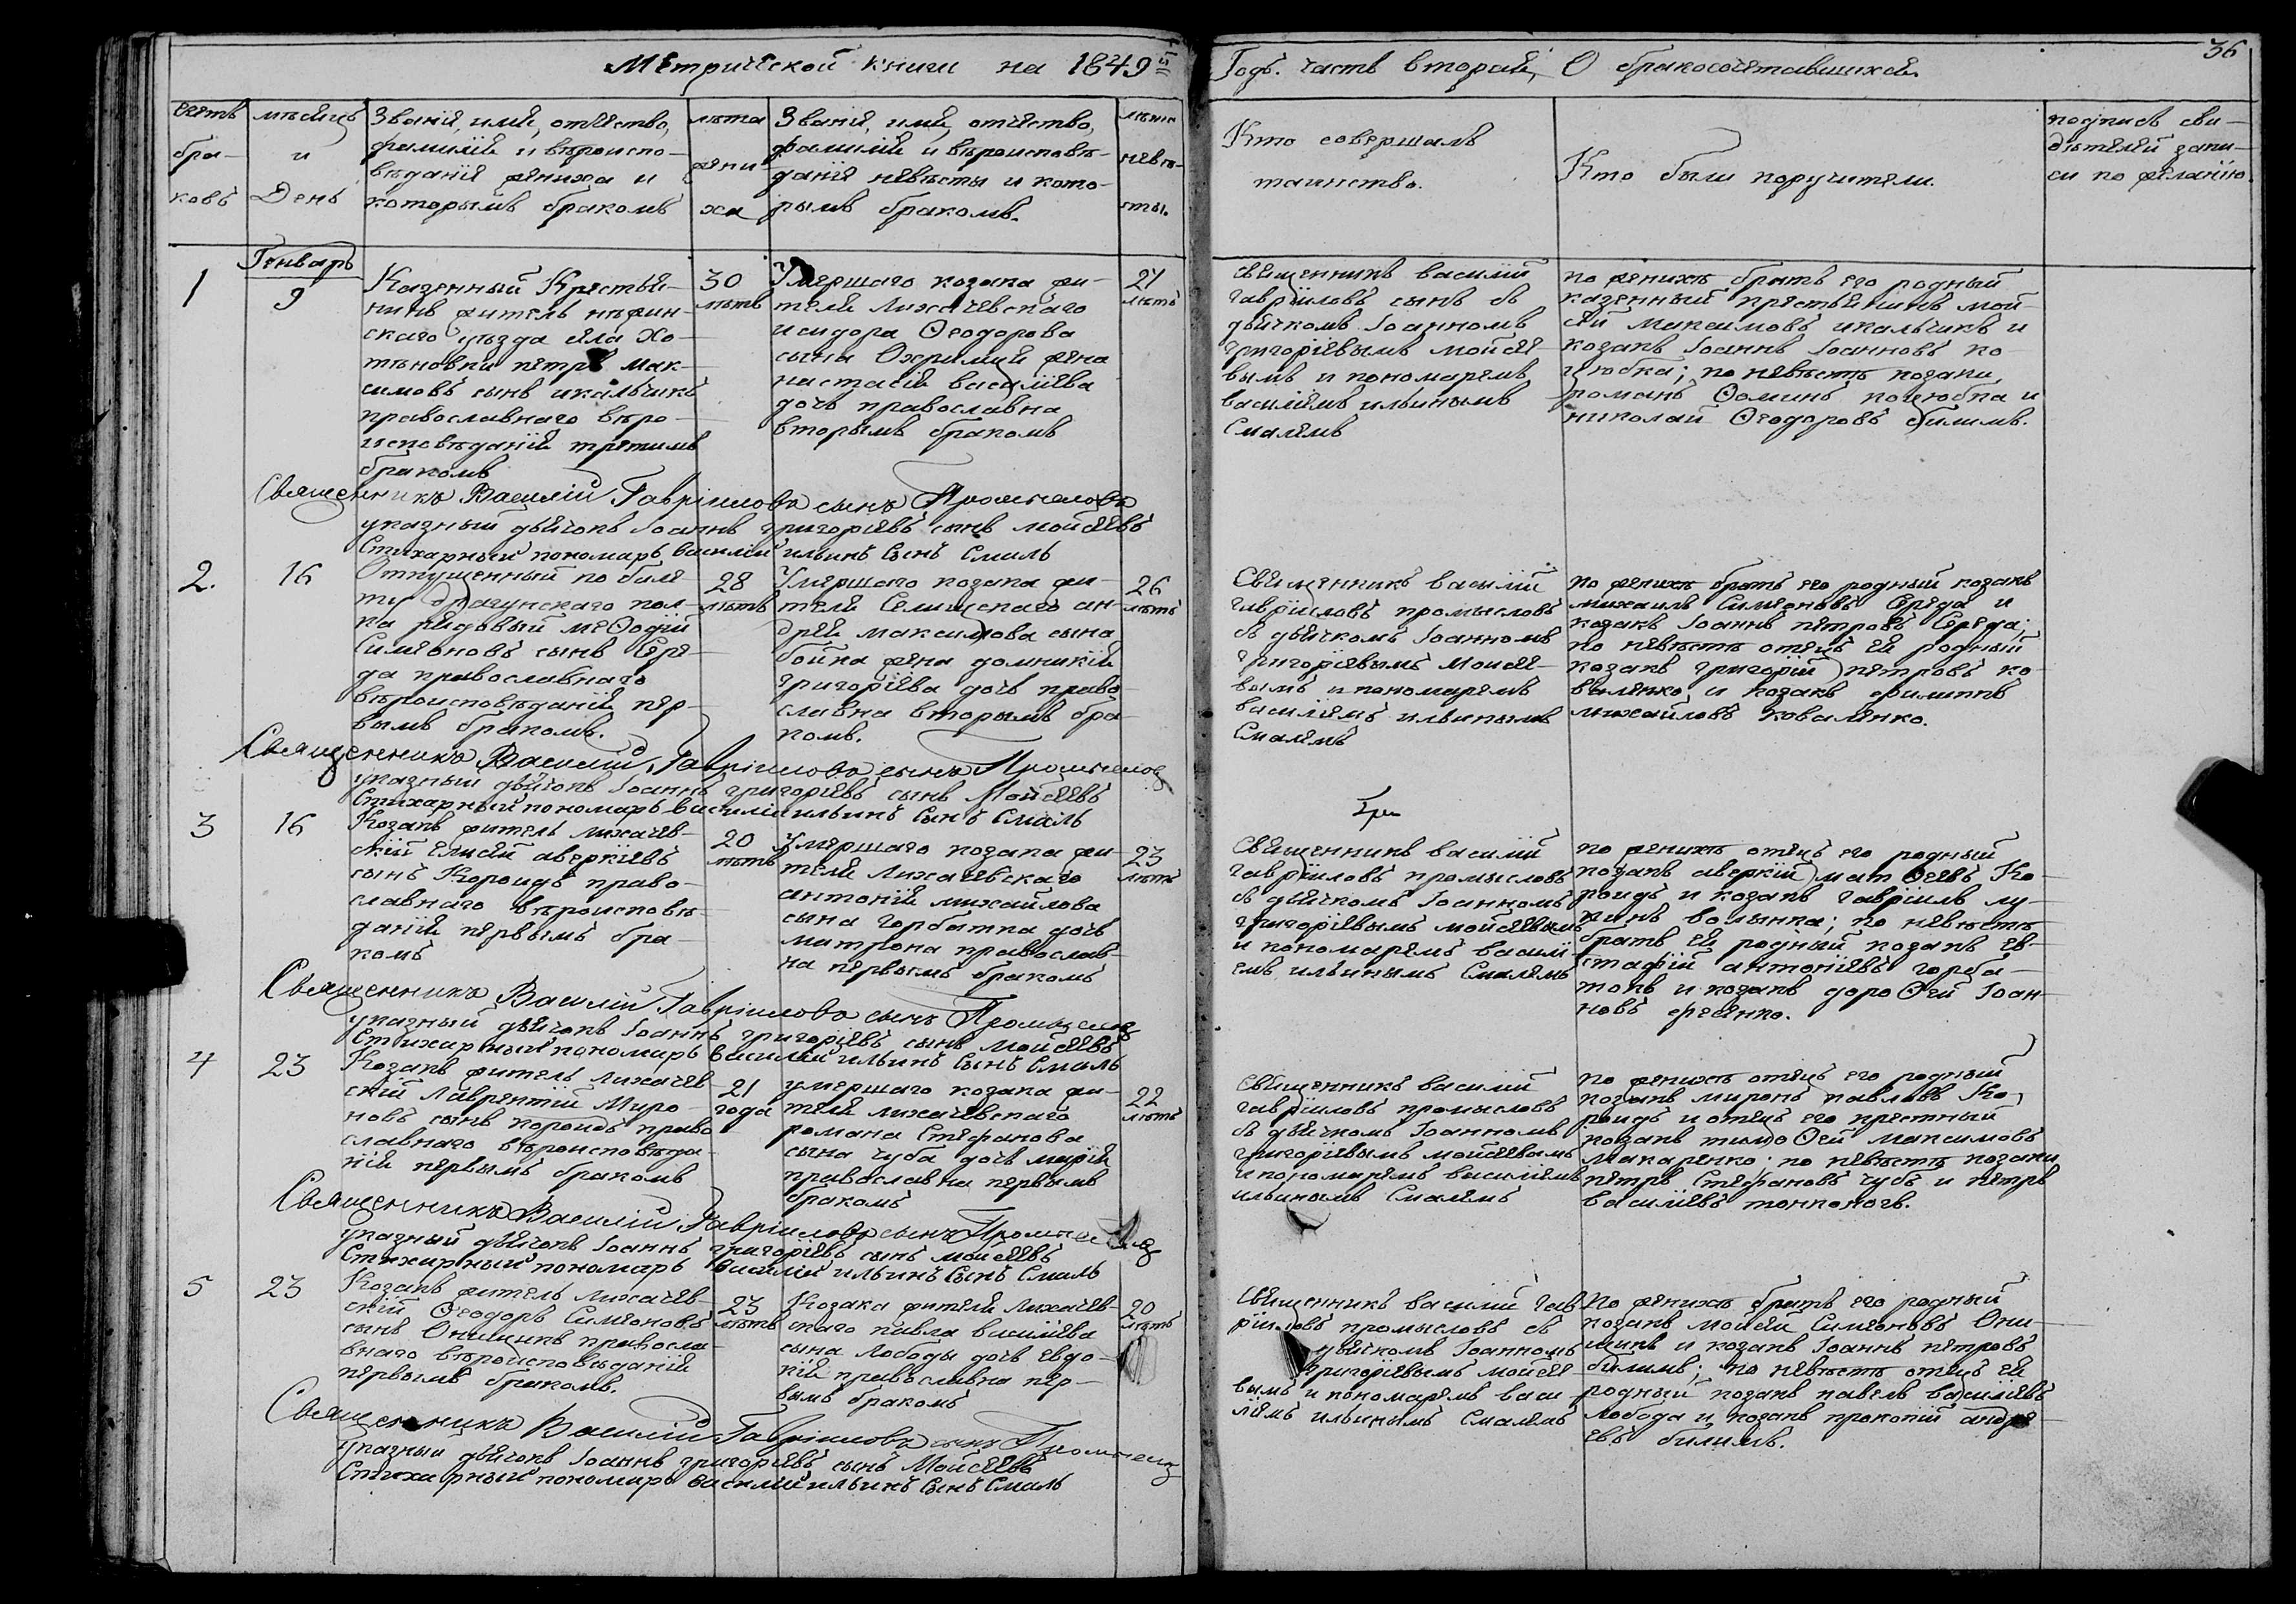 Метрической книги на 1849й
Годъ. часть вторая, О бракосочетавшихся.
36
счетъ бра-ковъ
мѣсяцъ и День
Званіе, имя, отчество,
фамилія и вѣроиспо-
вѣданіе жениха и
которымъ бракомъ
лѣта жени-ха
Званіе, имя, отчество,
фамилія и вѣроисповѣ-
даніе невѣсты и кото-
рымъ бракомъ.
лѣта невѣ-сты.
Кто совершалъ
таинство.
Кто были поручители.
подпись сви-
дѣтелей запи-
си по желанію.
Генварь
1
9
Казенный Крестья-
нинъ житель нѣжин-
скаго уѣзда села Хо-
тѣновки петръ Мак-
симовъ сынъ
православнаго вѣро-
исповѣданія третимъ
бракомъ
30
лѣтъ
Умершаго козака жи-
теля Лихачевскаго
исидора Ѳеодорова
сына жена
настасія василіева
дочь православна
вторымъ бракомъ
21
лѣтъ
священникъ василій
гавріиловъ сынъ съ
дьячкомъ Іоанномъ
григоріевымъ мойсее-
вымъ и пономаремъ
василіемъ ильинымъ
Смалемъ
по женихѣ братъ его родный
казенный крестьянинъ мой-
сей максимовъ и
козакъ Іоаннъ Іоанновъ ко-
цюбка; по невѣстѣ козаки
романъ Ѳоминъ коцюбка и
николай Ѳеодоровъ билимъ.
Священникъ Василій Гавріиловъ сынъ Промысловъ
указный дьячокъ Іоаннъ григоріевъ сынъ мойсеевъ
Стихарный пономарь василій ильинъ Сынъ Смаль
2.
16
Отпущенный по биле-
ту драгунскаго пол-
ка рядовый меѳодій
Симеоновъ сынъ Сере-
да православнаго
вѣроисповѣданія пер-
вымъ бракомъ.
28
лѣтъ
Умершаго козака жи-
теля Селищскаго ан-
дрея максимова сына
бойка жена домникія
григоріева дочь право-
славна вторымъ бра-
комъ.
26
лѣтъ
Священникъ василій
гавріиловъ промысловъ
съ дьячкомъ Іоанномъ
григоріевымъ Мойсее-
вымъ и пономаремъ
василіемъ ильинымъ
Смалемъ
по женихѣ братъ его родный козакъ
михаилъ Симеоновъ Середа и
козакъ Іоаннъ петровъ Середа;
по невѣстѣ отецъ ея родный
козакъ григорій петровъ ко-
валенко и козакъ филиппъ
михайловъ коваленко.
Священникъ Василій Гавріиловъ сынъ Промысловъ
указный дьячокъ Іоаннъ григоріевъ сынъ Мойсеевъ
Стихарный пономарь василій ильинъ Сынъ Смаль
3
16
Козакъ житель лихачев-
скій Елисей аверкіевъ
сынъ Короидъ право-
славнаго вѣроисповѣ-
данія первымъ бра-
комъ
20
лѣтъ
Умершаго козака жи-
теля Лихачевскаго
антонія михайлова
сына горбатка дочь
матрона православ-
на первымъ бракомъ
23
лѣтъ
Священникъ василій
гавріиловъ промысловъ
съ дьячкомъ Іоанномъ
григоріевымъ мойсеевымъ
и пономаремъ василі-
емъ ильинымъ Смалемъ
по женихѣ отецъ его родный
козакъ аверкій матѳеевъ Ко-
роидъ и козакъ гавріилъ лу-
кинъ волынка; по невѣстѣ
братъ ея родный козакъ ев-
стафій антоніевъ горба-
токъ и козакъ дороѳей Іоан-
новъ фесенко.
Священникъ Василій Гавріиловъ сынъ Промысловъ
указный дьячокъ Іоаннъ григоріевъ сынъ мойсеевъ
Стихарный пономарь василій ильинъ Сынъ Смаль
4
23
Козакъ житель лихачев-
скій Лаврентій Миро-
новъ сынъ короидъ право-
славнаго вѣроисповѣда-
нія первымъ бракомъ
21
года
умершаго козака жи-
теля лихачевскаго
романа Стефанова
сына чуба дочь марія
православна первымъ
бракомъ
22
лѣтъ
Священникъ василій
гавріиловъ промысловъ
съ дьячкомъ Іоанномъ
григоріевымъ мойсеевымъ
и пономаремъ василіемъ
ильинымъ Смалемъ
по женихѣ отецъ его родный
козакъ миронъ павловъ Ко-
роидъ и отецъ его крестный
козакъ тимоѳей максимовъ
макаренко; по невѣстѣ козаки
петръ Стефановъ чубъ и петръ
василіевъ тонконогъ.
Священникъ Василій Гавріиловъ сынъ Промысловъ
указный дьячокъ Іоаннъ григоріевъ сынъ мойсеевъ
Стихарный пономарь василій ильинъ Сынъ Смаль
5
23
Козакъ житель лихачев-
скій Ѳеодоръ Симеоновъ
сынъ Онищикъ правосла-
внаго вѣроисповѣданія
первымъ бракомъ.
23
лѣтъ
Козака жителя Лихачев-
скаго павла василіева
сына Лободы дочь евдо-
кія православна пер-
вымъ бракомъ
20
лѣтъ
Священникъ василій гав-
ріиловъ промысловъ съ
дьячкомъ Іоанномъ
григоріевымъ мойсее-
вымъ и пономаремъ васи-
ліемъ ильинымъ Смалемъ
По женихѣ братъ его родный
козакъ мойсей Симеоновъ Они-
щикъ и козакъ Іоаннъ петровъ
билимъ; по невѣстѣ отецъ ея
родный козакъ павелъ василіевъ
лобода и козакъ прокопій андре-
евъ билимъ.
Священникъ Василій Гавріиловъ сынъ Промысловъ
указный дьячокъ Іоаннъ григоріевъ сынъ Мойсеевъ
Стихарный пономарь василій ильинъ Сынъ Смаль